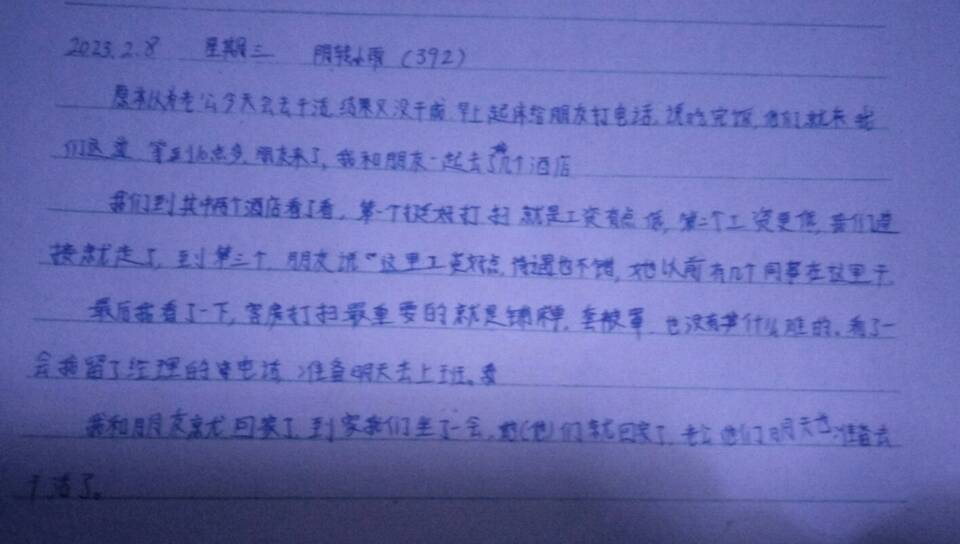 2023.2.8 星期三 阴转小雨（392）
原本以为老公今天会去干活,结果又没干成,早上起床给朋友打电话,说吃完饭,他们就来我
们这里,等到10点多,朋友来了,我和朋友一起去了几个酒店
我们到其中两个酒店看了看,第一个挺好打扫就是工资有点低,第二个工资更低,我们直
接就走了,到第三个,朋友说"这里工资好点,待遇也不错,她以前有几个同事在这里干.
最后我看了一下,客房打扫最重要的就是铺床,套被罩,也没有什么难的,看了一
会我留了经理的电话,准备明天去上班。
我和朋友就回家了,到家我们坐了一会,她(他)们就回家了,老公他们明天也准备去
干活了。